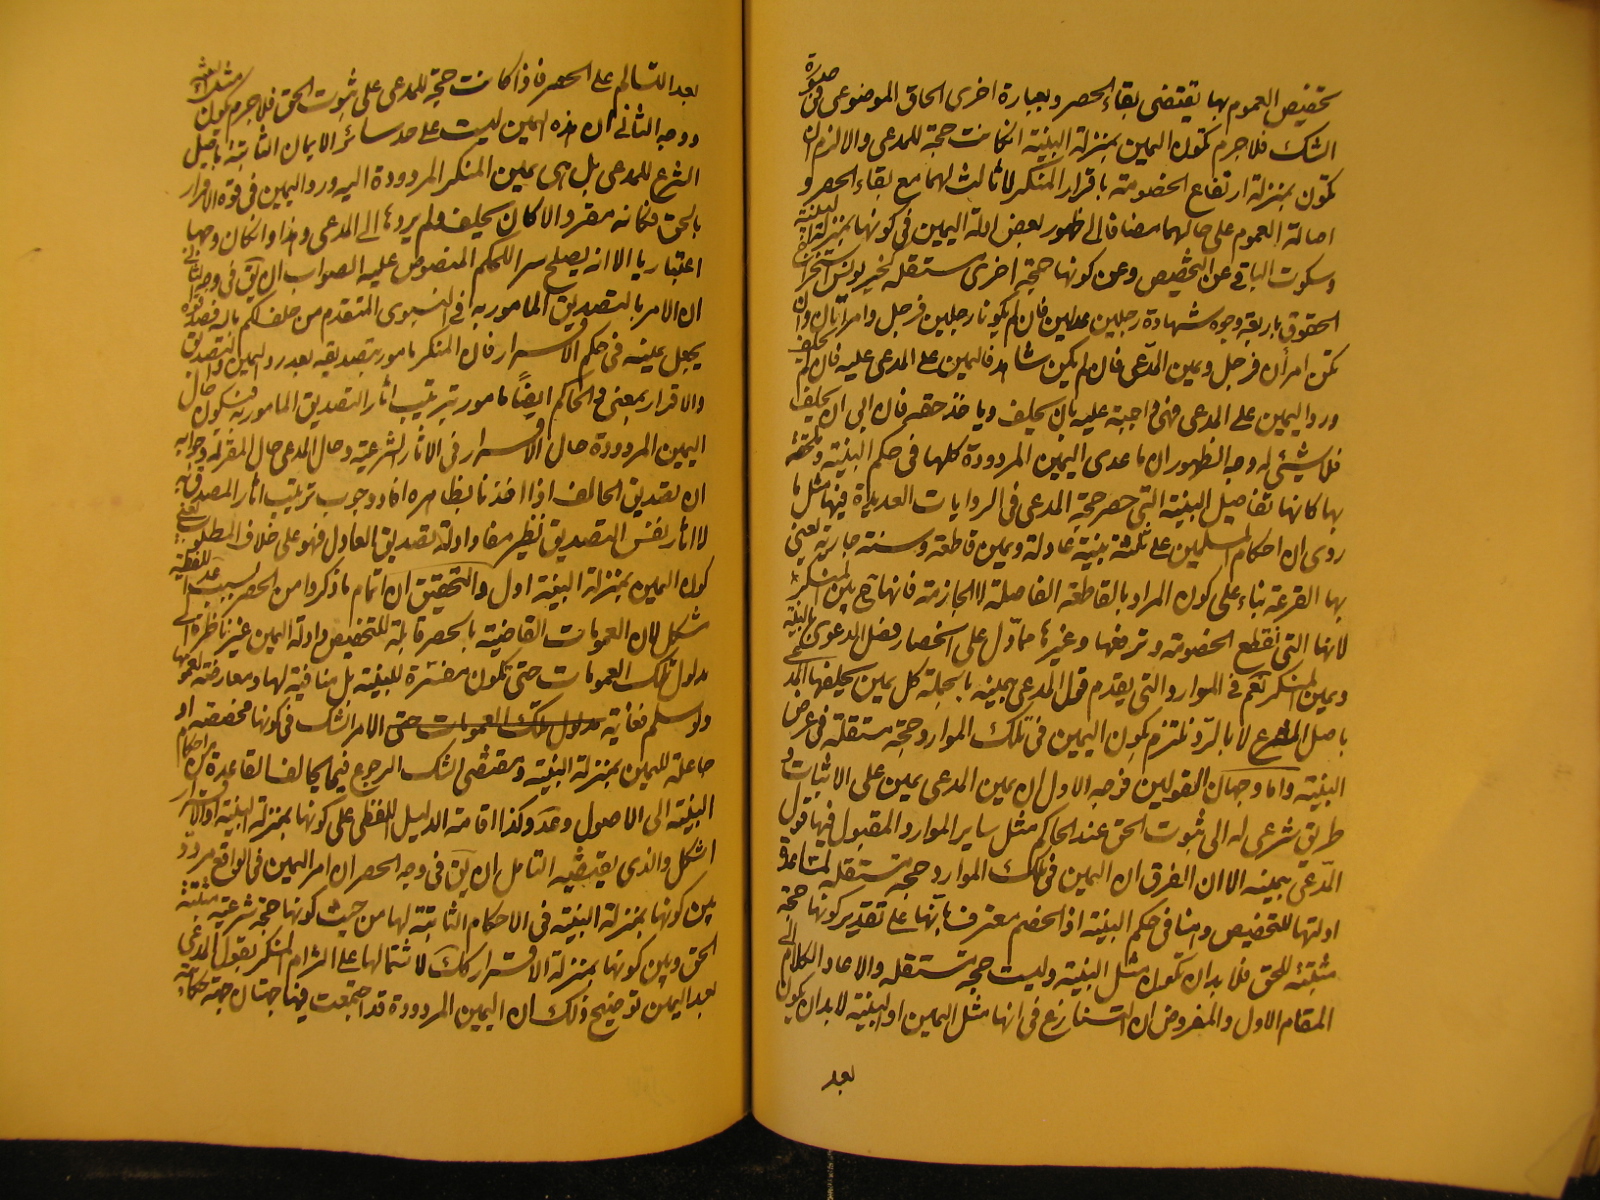 تخصيص العموم بها يقتضى بقاء الحصر وبعبارة اخرى الحاق الموضوعى فى صورة
الشك فلا جرم تكون اليمين بمنزلة البينة ان كانت حجة للمدعى والا لزم ان
تكون بمنزلة ارتفاع الخصومة باقرار المنكر لا ثالث لهما مع بقاء الحصر و
اصالة العموم على حالهما مضافا الى ظهور بعض ادلة اليمين فى كونها بمنزلة البينة
وسكوت الباقى عن التخصيص وعن كونها حجة اخرى مستقلة كخبر يونس استخراج
الحقوق باربعة وجوه شهادة رجلين عدلين فان لم يكونا رجلين فرجل وامراتان وان
تكن امرأتان فرجل ويمين المدّعى فان لم يكن شاهد فاليمين على المدعى عليه فان لم يحلف
ورد اليمين على المدعى فهى واجبة عليه بان يحلف وياخذ حقه فان ابى ان يحلف
فلا شيئى له وجه الظهور ان ما عدى اليمين المردودة كلها فى حكم البينة وملحقة
بها كانها تفاصيل البينة التى حصر حجة المدعى فى الروايات العديدة فيها مثل ما
روى ان احكام المسلمين على ثلثة بينة عادلة ويمين قاطعة وسنة جارية يعنى
بها القرعة بناء على كون المراد بالقاطعة الفاصلة لا الجازمة فانها ح يمين المنكر
لانها التى تقطع الخصومة وترفعها وغيرها مما دل على انحصار فصل الدعوى بالبينة
ويمين المنكر نعم فى الموارد التى يقدم قول المدعى بيمينه بالجملة كل يمين يحلفها المدعى
باصل الشرع لا بالردّ نلتزم بكون اليمين فى تلك الموارد حجة مستقلة فى عرض
البينة واما وجهان القولين فوجه الاول ان يمين المدعى يمين على الاثبات و
طريق شرعى له الى ثبوت الحق عند الحاكم مثل ساير الموارد المقبول فيها قول
المدّعى بيمينه الا ان الفرق ان اليمين فى تلك الموارد حجة مستقلة لمساعدة
ادلتها للتخصيص وهنا فى حكم البينة اذ الخصم معترف بانها على تقدير كونها حجة
مثبتة للحق فلا بد ان تكون مثل البينة وليست حجة مستقلة والا عاد الكلام الى
المقام الاول والمفروض ان التنازع فى انها مثل اليمين او البينة لا بد ان يكون
بعد
بعد التسالم على الحصر فاذا كانت حجة للمدعى على ثبوت الحق فلا جرم تكون مثل البينة
ووجه الثانى ان هذه اليمين ليست على حد سائر الايمان الثابتة باصل
الشرع للمدعى بل هى يمين المنكر المردودة اليه ورد اليمين فى قوة الاقرار
بالحق فكانه مقر والا كان يحلف ولم يردها الى المدعى وهذا وان كان وجها
اعتباريا الا انه يصلح سرا للحكم المنصوص عليه الصواب ان يق فى وجه الثانى
ان الامر بالتصديق المامور به فى النبوى المتقدم من حلف لكم بالله فصدقوه
يجعل يمينه فى حكم الاقرار فان المنكر مامور بتصديقه بعد رد اليمين والتصديق
والاقرار بمعنى فالحاكم ايضاً مامور بترتيب اثار التصديق المامور به فيكون حال
اليمين المردودة حال الاقرار فى الاثار الشرعية وحال المدعى حال المقر له وجوابه
ان تصديق الحالف اذا اخذنا بظاهره افاد وجوب ترتيب اثار المصدق به
لا اثار نفس التصديق نظير مفاد ادلة تصديق العادل فهو على خلاف المطلوب يعنى
كون اليمين بمنزلة البينة اول والتحقيق ان اتمام ما ذكروا من الحصر بسبب اللفظية
مشكل لان العمومات القاضية بالحصر قابلة للتخصيص وادلة اليمين غير ناظرة الى
مدلول تلك العمومات حتى تكون مفسّرة للبينة بل منافية لها ومعارضة لعمومها
ولو سلم فغاية مدلول تلك العمومات حتى الامر الشك فى كونها مخصصة او
جاعلة لليمين بمنزلة البينة ومقتضى الشك الرجوع فيما يخالف القاعدة من احكام
البينة الى الاصول وعده وكذا اقامة الدليل اللفظى على كونها بمنزلة البينة او الاقرار
اشكل والذى يقتضيه التامل ان يق فى وجه الحصر ان امر اليمين فى الواقع مردّد
بين كونها بمنزلة البينة فى الاحكام الثابتة لها من حيث كونها حجة شرعية مثبتة
الحق وبين كونها بمنزلة الاقرار كك لاشتمالها على الزام المنكر بقول المدعى
بعد اليمين توضيح ذلك ان اليمين المردودة قد اجتمعت فيها جهتان جهة